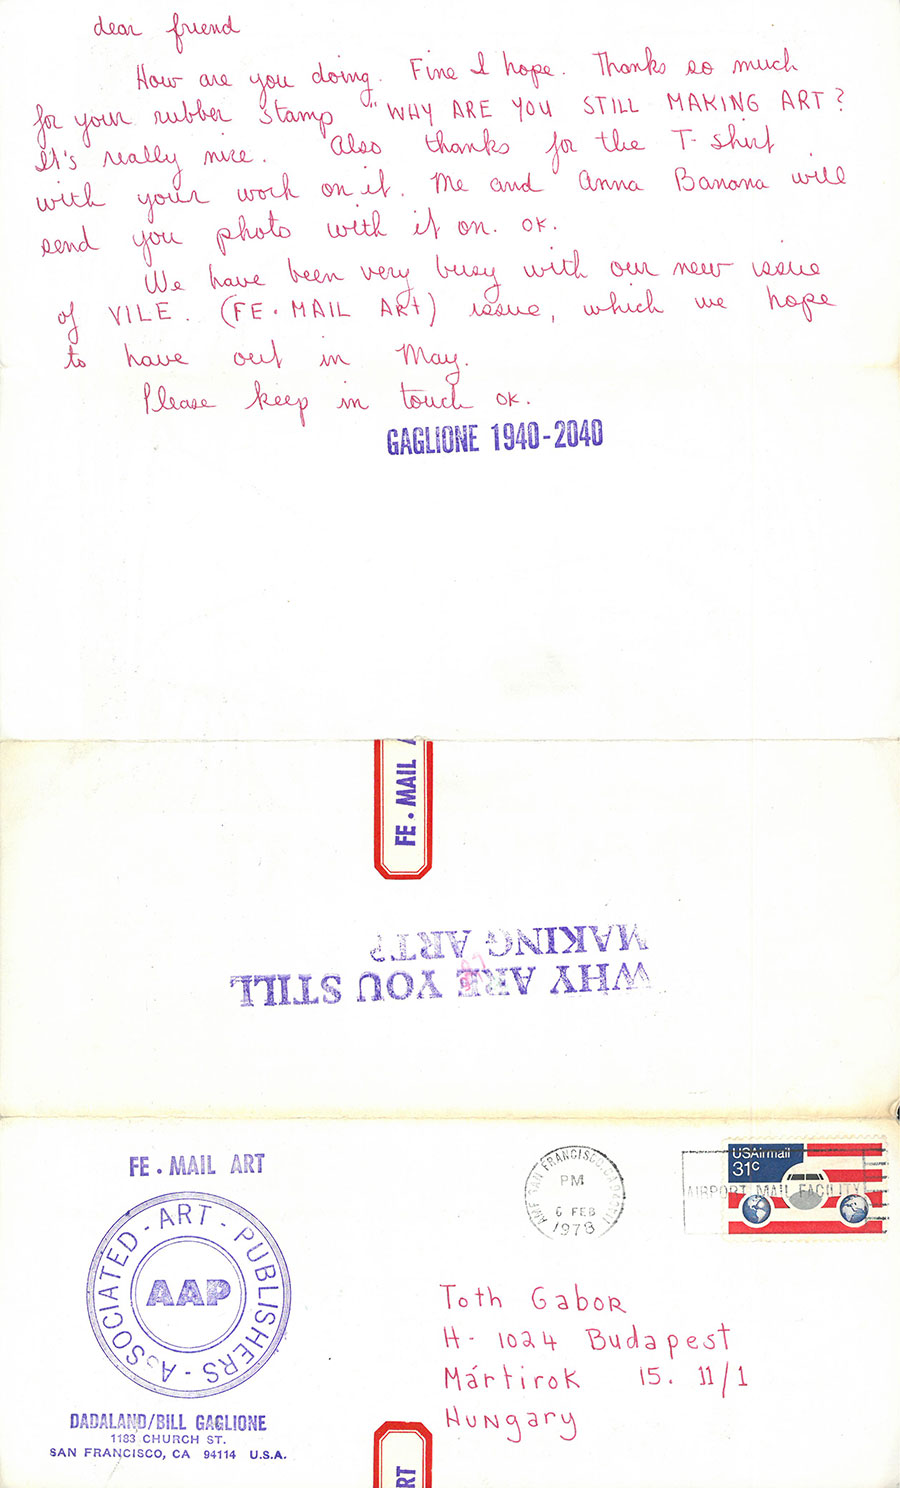 dear friend
How are you doing. Fine I hope. Thanks so much
for your rubber stamp "WHY ARE YOU STILL MAKING ART?
It's really nice. Also thanks for the T-shirt
with your work on it. Me and Anna Banana will
send you photo with it on. OK.
We have been very busy with our new issue
of VILE. (FE·MAIL ART) issue, which we hope
to have out in May.
Please keep in touch OK.
GAGLIONE 1940-2040
FE. MAIL A
WHY ARE YOU STILL
MAKING ART?
FE. MAIL ART
ASSOCIATED - ART - PUBLISHERS -
AAP
DADALAND/BILL GAGLIONE
1183 CHURCH ST.
SAN FRANCISCO, CA 94114 U.S.A.
SAN FRANCISCO, CA
PM
6 FEB
1978
AIRPORT MAIL FACILITY
USAirmail
31c
Toth Gabor
H- 1024 Budapest
Mártirok 15. 11/1
Hungary
RT